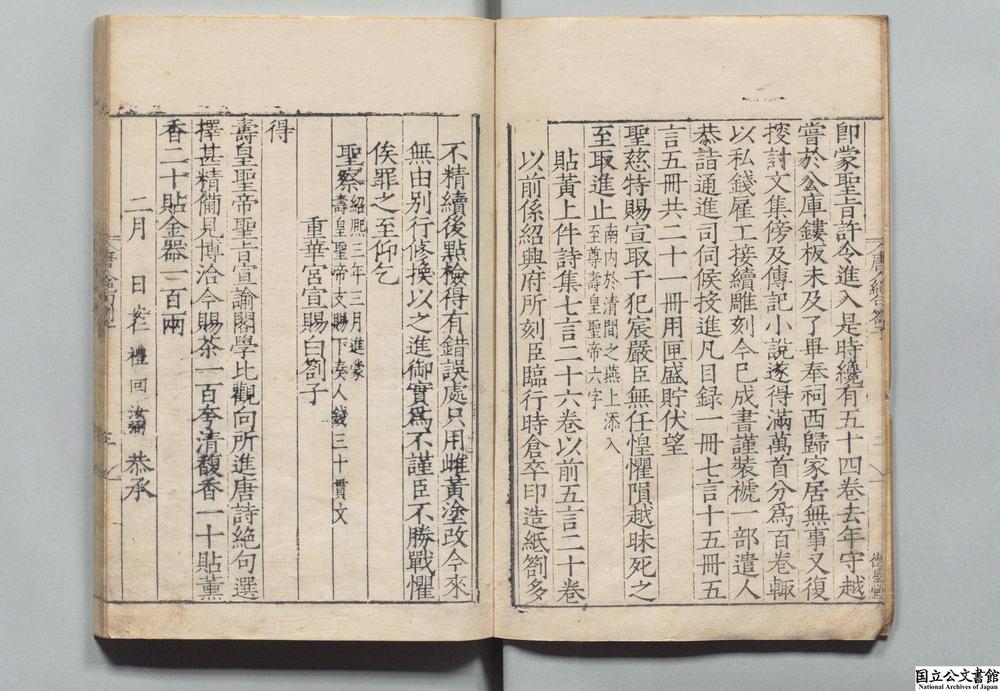 即蒙聖旨許令進入是時纔有五十四卷去年守越
嘗於公庫鏤板未及了畢奉祠西歸家居無事又復
搜討文集傍及傳記小說遂得滿萬首分爲百卷輙
以私錢雇工接續雕刻今已成書謹裝褫一部遣人
恭詣通進司伺候投進凡目録一冊七言十五冊五
言五冊共二十一冊用匣盛貯伏望
聖慈特賜宣取干犯宸嚴臣無任惶懼隕越昧死之
至取進止南内於清閒之燕上添入
至尊壽皇聖帝六字
貼黃上件詩集七言二十六卷以前五言二十卷
以前係紹興府所刻臣臨行時倉卒印造紙劄多
不精續後點檢得有錯誤處只用雌黃塗改今來
無由別行修換以之進御實爲不謹臣不勝戰懼
俟罪之至仰乞
聖察紹熙三年三月進蒙
壽皇聖帝支賜下奏人錢三十貫文
重華宮宣賜白劄子
得
壽皇聖帝聖旨宣諭閣學比觀向所進唐詩絶句選
擇甚精備見博洽今賜茶一百夸清馥香一十貼薰
香二十貼金器一百兩
二月 日 禮 回 恭承
国立公文書館
National Archives of Japan